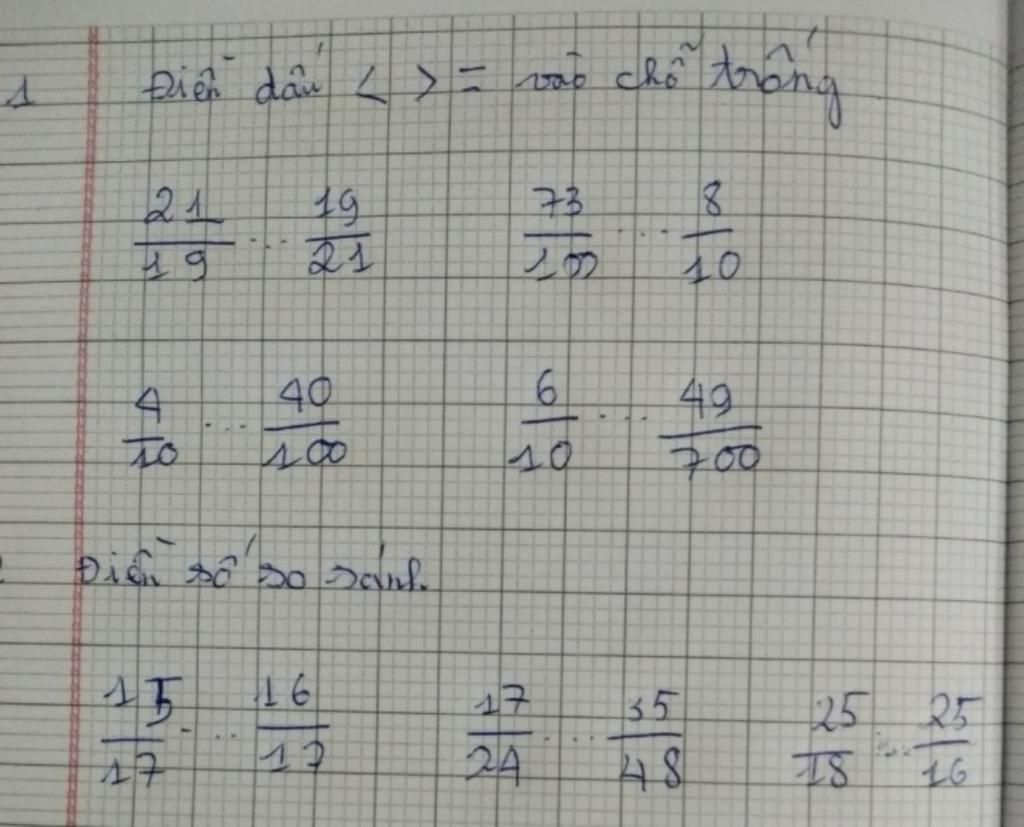 1 Điền dấu < > = vào chỗ trống
21/19 ... 19/21 73/100 ... 8/10
4/10 ... 40/100 6/10 ... 49/700
Điền số so sánh.
15/17 ... 16/17 17/24 ... 35/48 25/18 ... 25/16